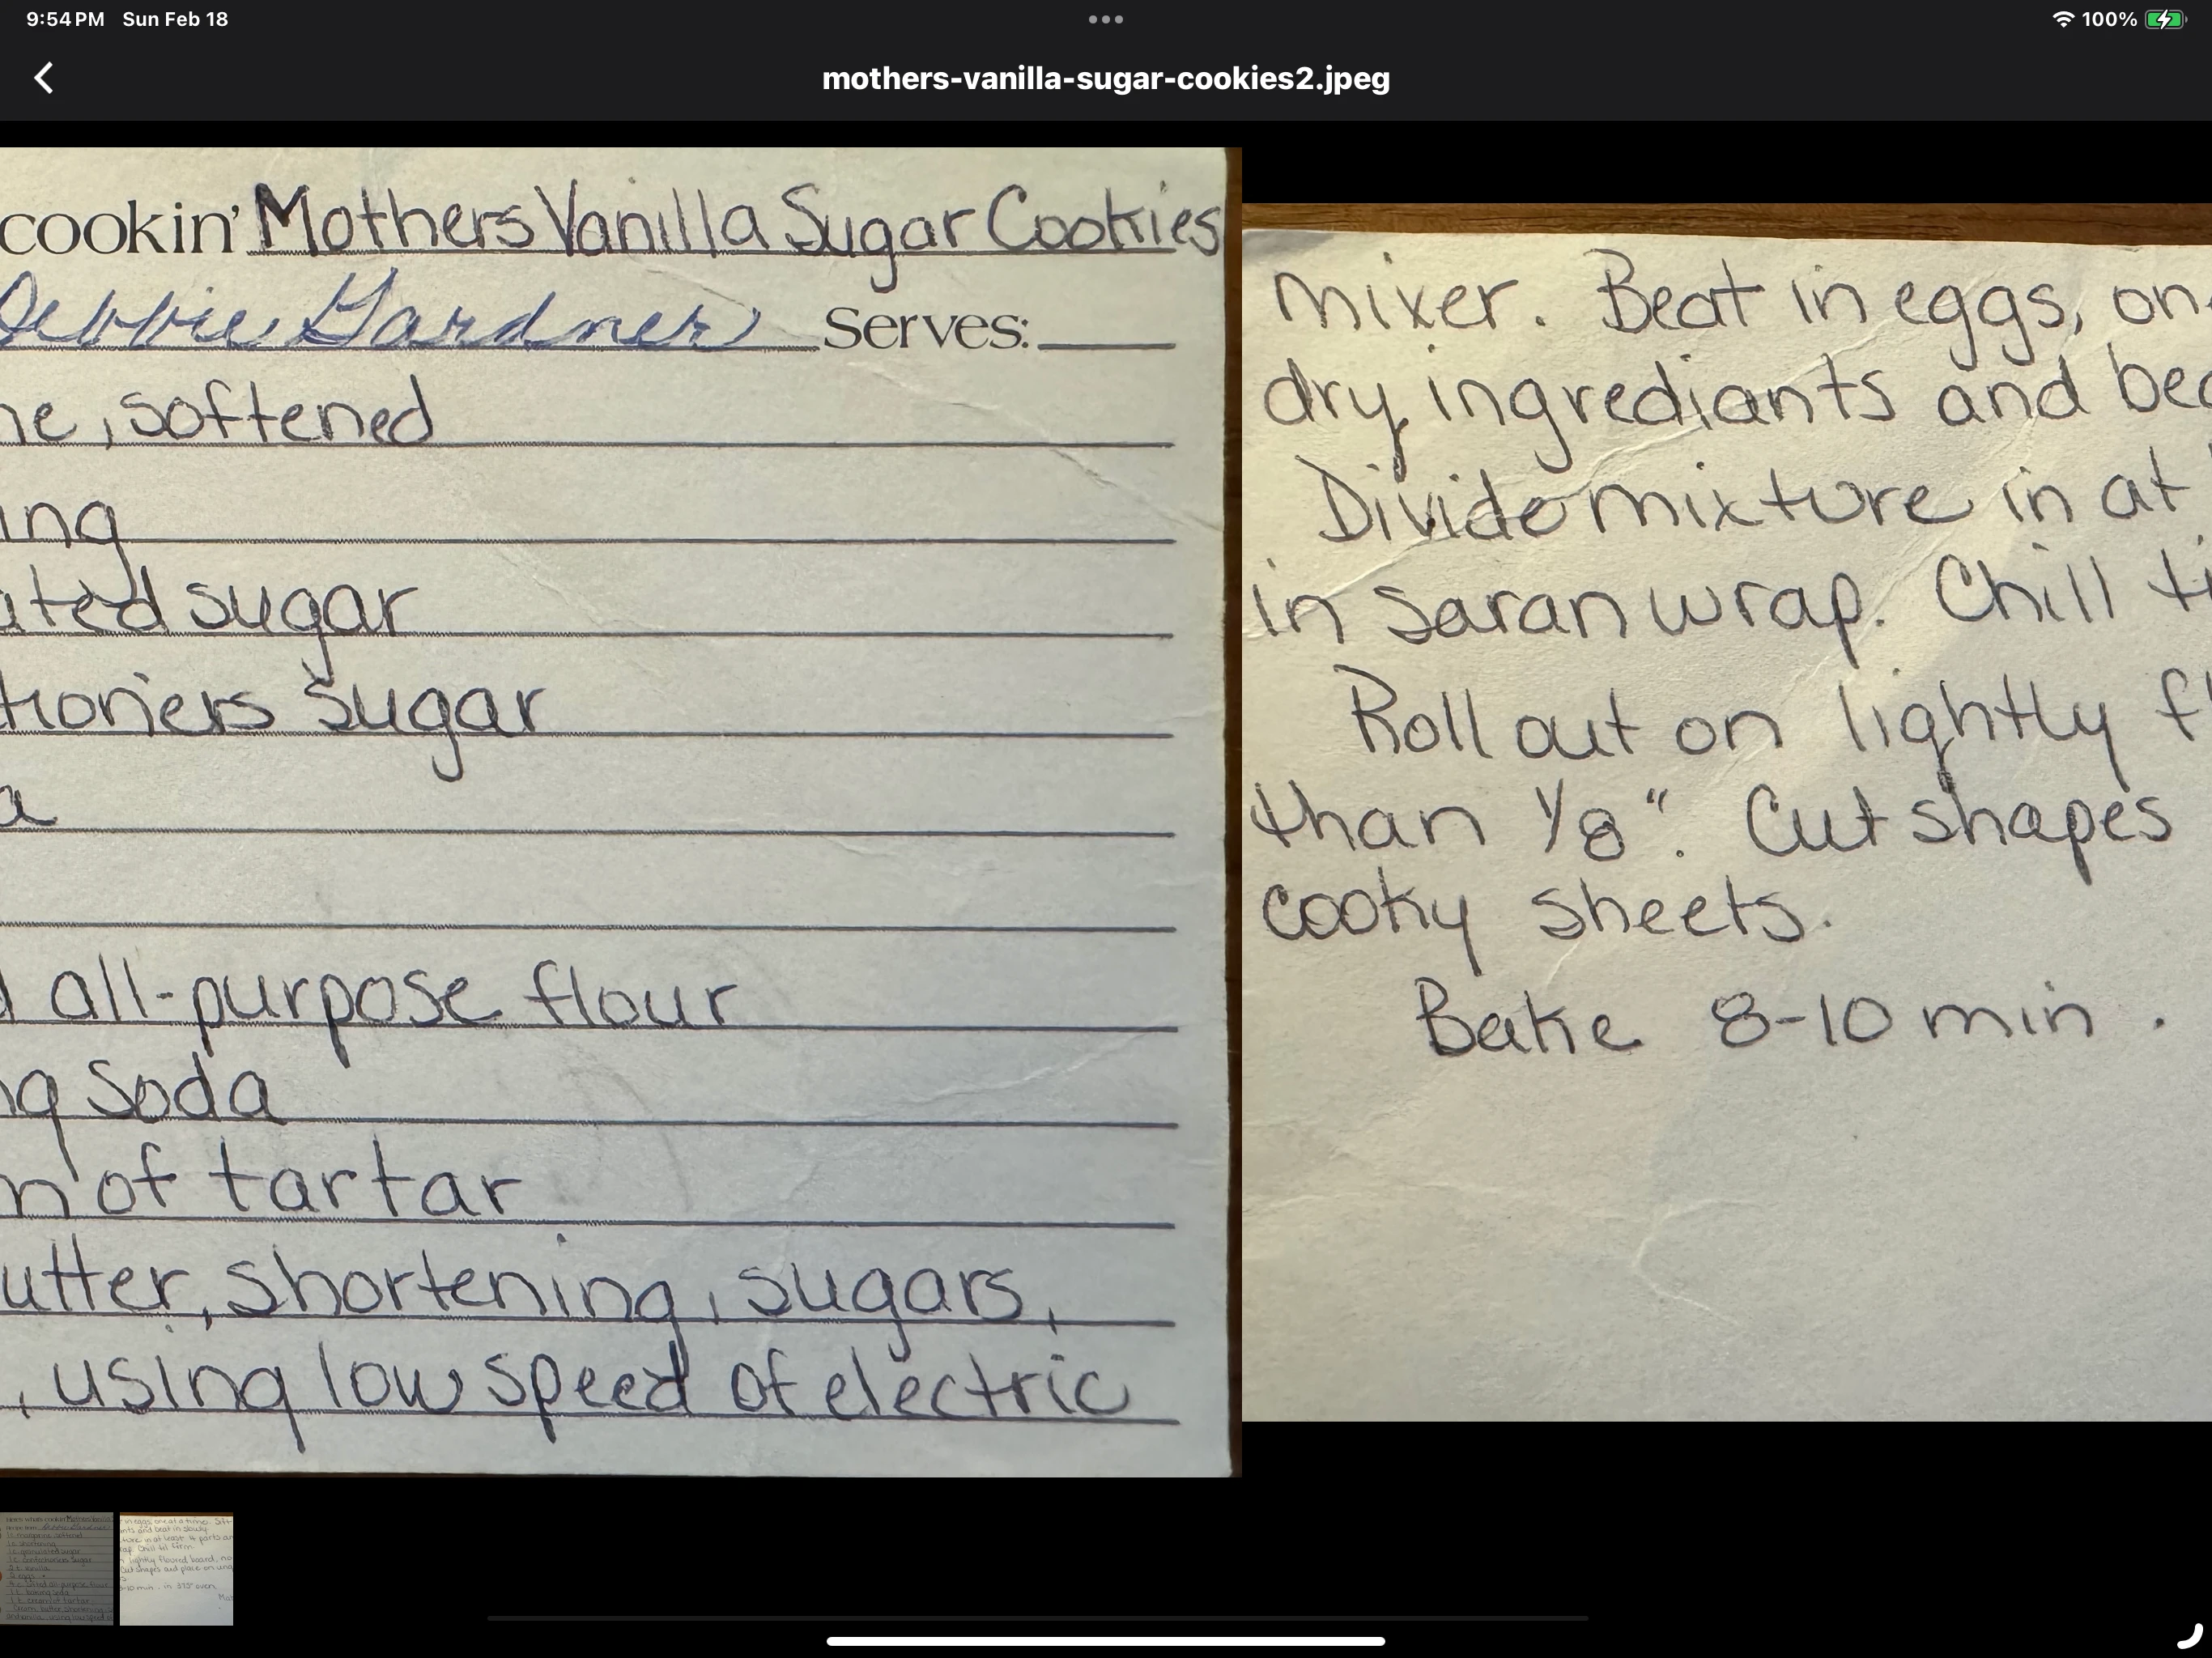 9:54 PM Sun Feb 18
100%
mothers-vanilla-sugar-cookies2.jpeg
cookin' Mothers Vanilla Sugar Cookies
Debbie Gardner Serves:
ne, softened
ing
ated sugar
tioners sugar
a
all-purpose flour
ng Soda
m of tartar
utter, shortening, sugars,
, using low speed of electric
mixer. Beat in eggs, on
dry ingrediants and bea
Divide mixture in at
in saran wrap. Chill ti
Roll out on lightly fl
than 1/8". Cut shapes
cooky sheets.
Bake 8-10 min.